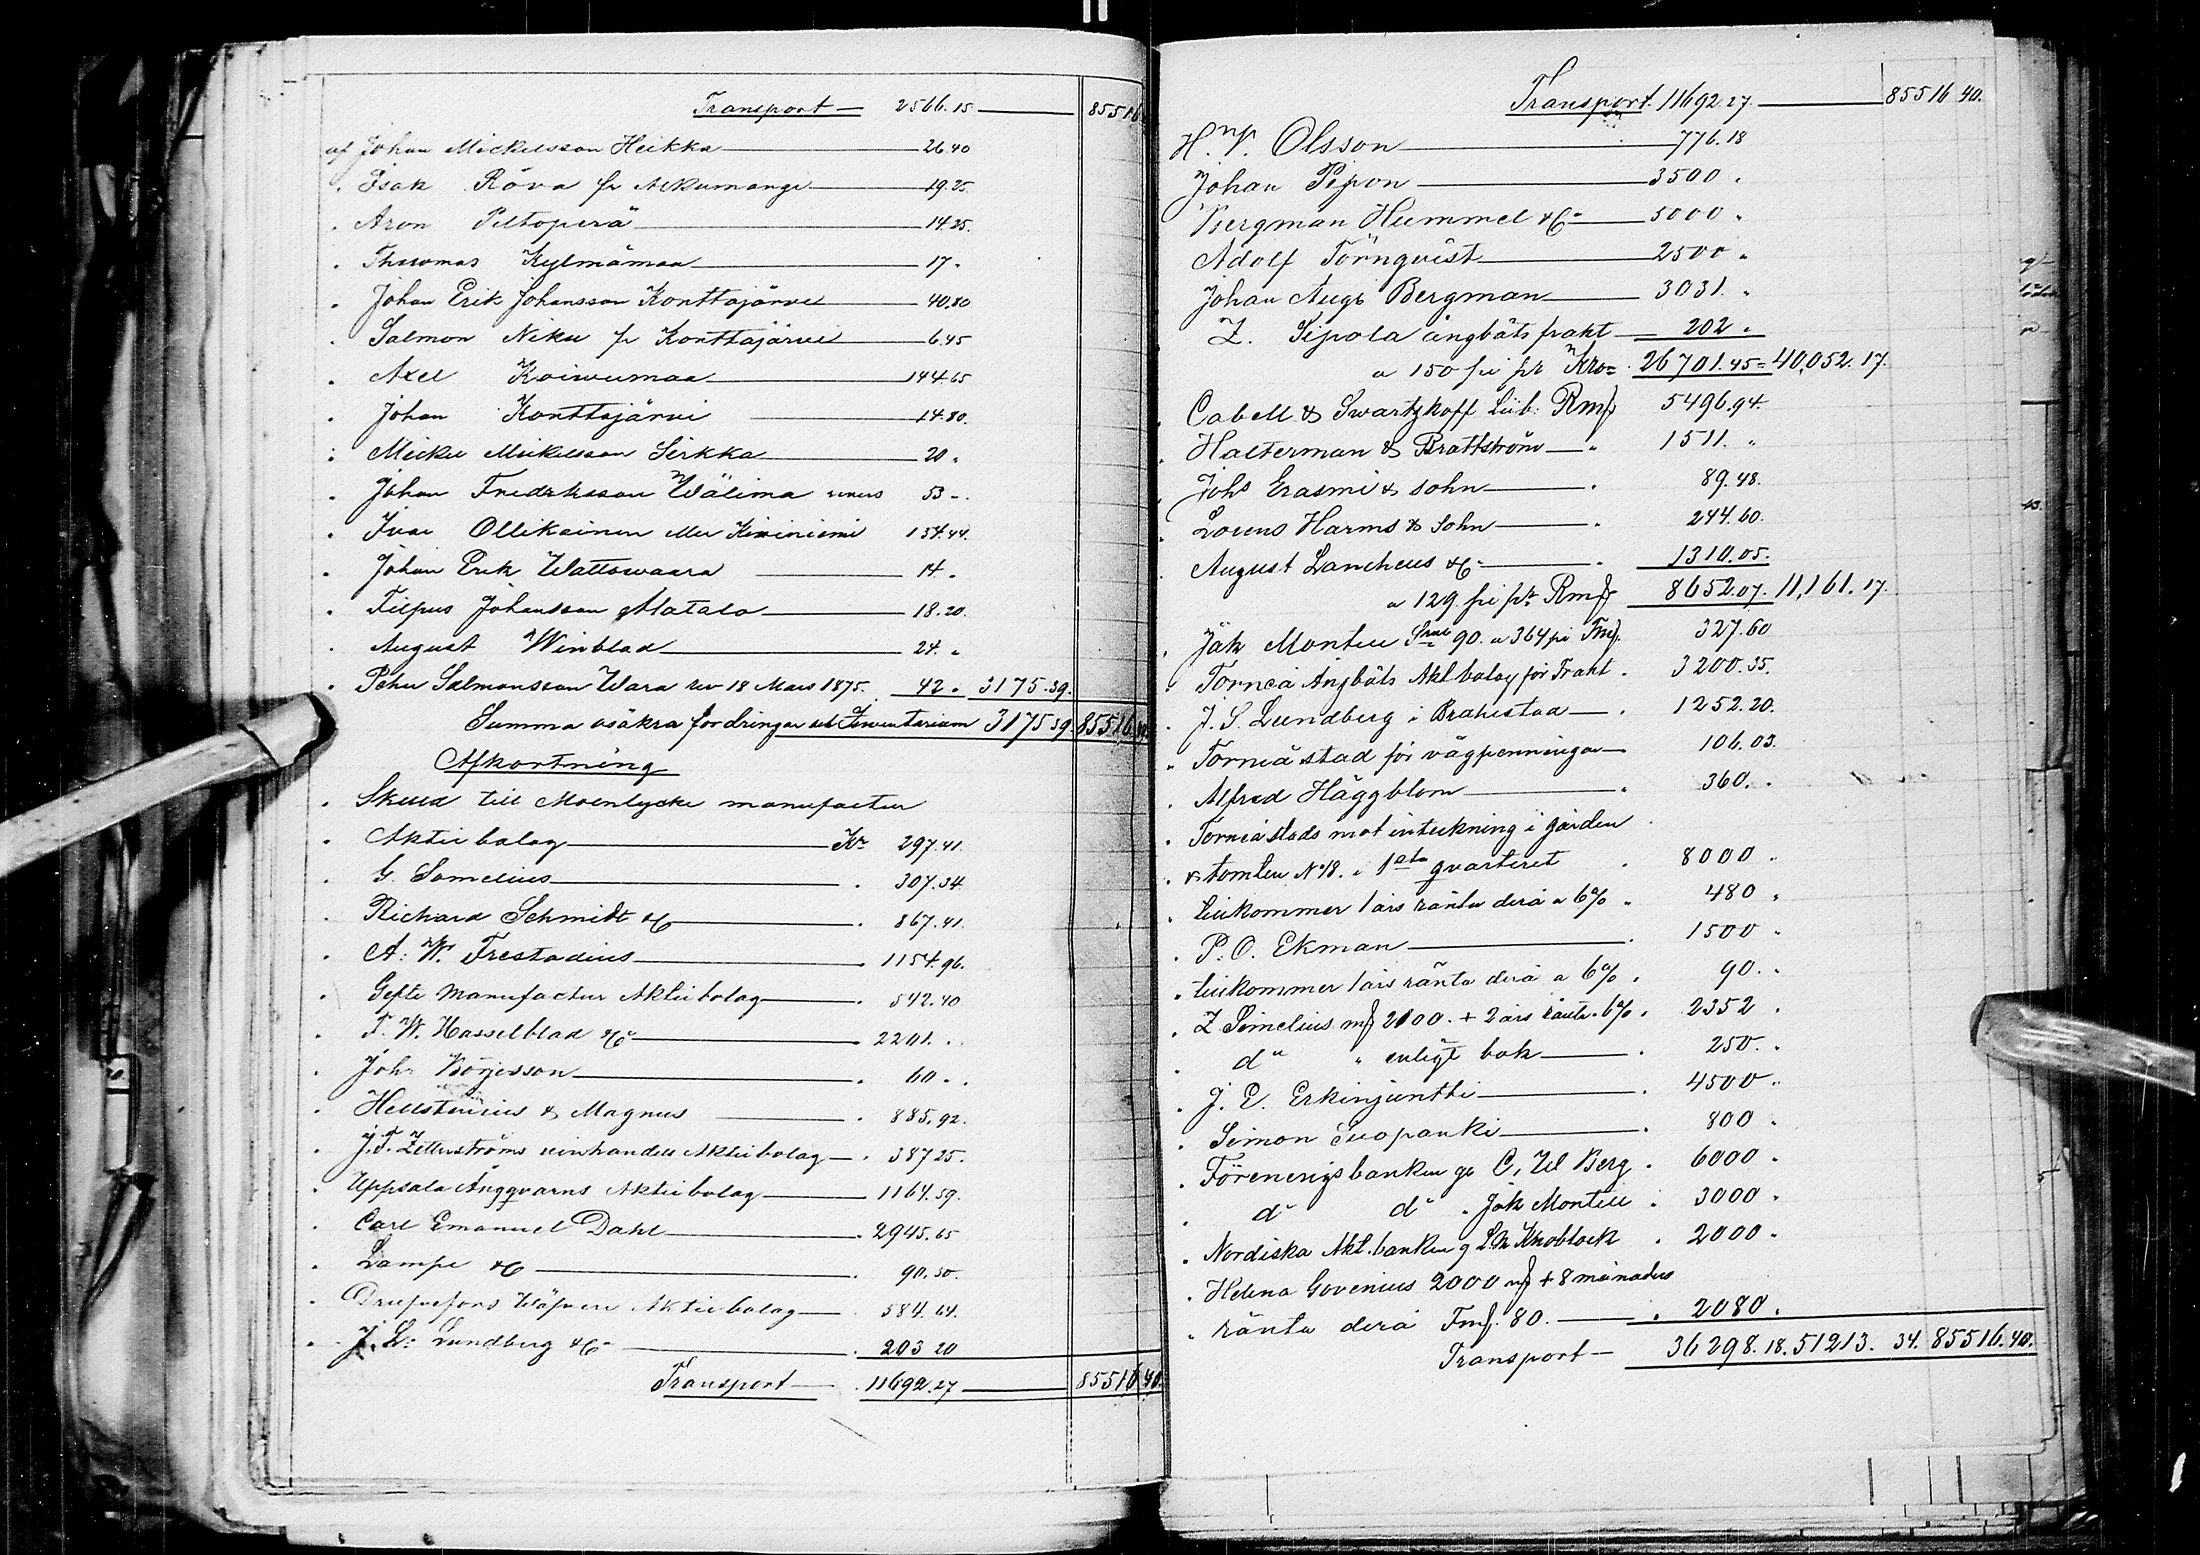 Transport — 2566.15 — 85516
af Johan Mickelsson Heikka — 26.40
" Isak Röva fr Alkumange — 19.25
" Aron Peltoperä — 14.25
" Thomas Kylmämaa — 17 "
" Johan Erik Johansson Konttajärvi — 40.80
" Salmon Niku fr Konttajärvi — 6.45
" Axel Koivumaa — 144.65
" Johan Konttajärvi — 14.80
" Mickel Mickelsson Sirkka — 20 "
" Johan Fredriksson Wälima revers 53 -
" Ivar Ollikainen eller Kiviniemi 134.44
" Johan Erik Wattowaara — 14 "
" Filpus Johansson Matala — 18.20
" August Winblad — 24. "
" Peter Salmonsson Wara rev 18 Mars 1875. 42 " 3175.39.
Summa osäkra fordringar och Inventarium 3175.39 85516.40
Afkortning
" Skuld till Moenlycke manufactur
" Aktiebolag — Kr 297.41
" G. Somelius — " 307.34
" Richard Schmidt &C — " 867.41
" A. W. Frestadius — " 1154.96.
" Gefle Manufactur Aktiebolag — " 542.40
" F. W. Hasselblad &Co — 2201. "
" Joh. Börjesson — " 60 " "
" Hellstenius & Magnus — " 885.92.
" J. F. Zetterströms vinhandels Aktiebolag — " 387.25.
" Uppsala Ångqvarns Aktiebolag — 1164.59.
" Carl Emanuel Dahl — " 2945.65
" Lampe &C — " 90.50.
" Drufvefors Wäfveri Aktiebolag — " 584.64.
" J. L. Lundberg &C — " 203 20
Transport — 11692.27 — 85516 40.
Transport. 11692.27. — 85516 40.
H. W. Olsson — 776.18
Johan Pipon — 3500 "
Bergman Hummel &Co — 5000 "
Adolf Törnqvist — 2500 "
Johan Aug. Bergman — 3031. "
Z. Sipola ångbåts frakt — 202 "
a 150 pi pr Kro = 26701.45 = 40,052.17.
" Cabell & Swartzkoff Lüb: Rmf 5496.94.
" Halterman & Brattström — " 1511. "
" Johs Erasmi & sohn — " 89.48.
" Lorens Harms & Sohn — " 244.60.
" August Lancheus &C — " 1310.05.
a 129 pi pr Rmf 8652.07. 11,161.17.
" Jak Montell 90. a 364 pi Fmf. 327.60
" Torneå Ångbåts Akt bolag för Frakt " 3200.35.
" J. S. Lundberg i Brahestad — " 1252.20.
" Torneå stad för vägpenningar — 106.03.
" Alfred Häggblom — " 360. "
" Torneå stads mot inteckning i gården
" & tomten No 18. i 1sta qvarteret " 8000 "
" tillkommer 1 års ränta derå a 6% " 480 "
" P. O. Ekman — " 1500 "
" tillkommer 1 års ränta derå a 6% " 90. "
" Z Simelius mf 2100. + 2 års ränta 6% " 2352 "
" do " enligt bok — " 250. "
" J. E. Erkinjuntti — " 4500 "
" Simon Suopanki — " 800 "
" Föreningsbanken ge C. Wl Berg " 6000 "
" do do " Jak Montell " 3000 "
" Nordiska Akt. banken g Knoblock " 2000 "
" Helena Govenius 2000 mf + 8 månaders
" ränta derå Fmf. 80. — " 2080 "
Transport — 36298.18. 51213. 34. 85516.40.